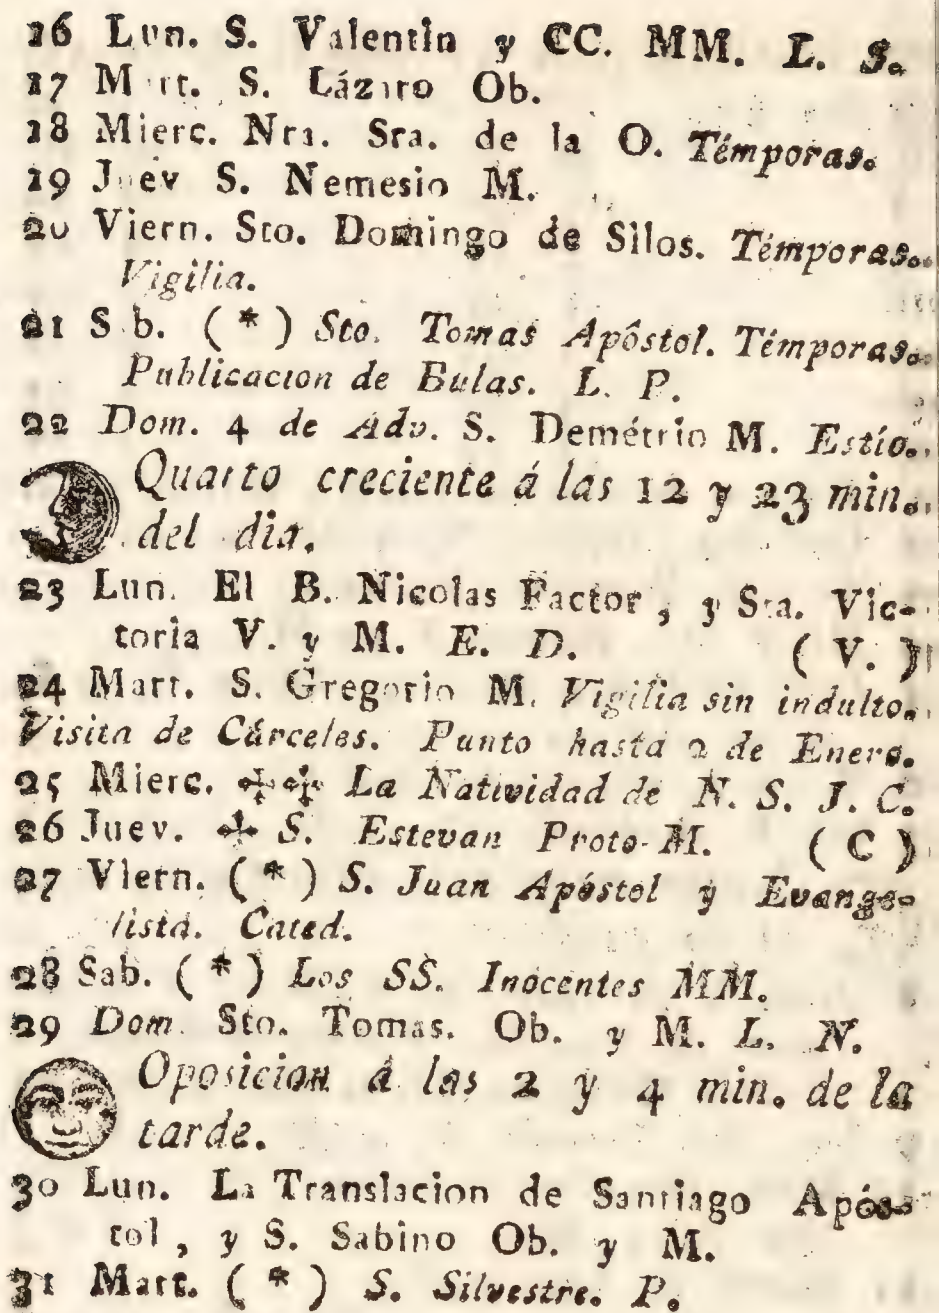 16 Lun. S. Valentin y CC. MM. L. S.
17 Mart. S. Lázaro Ob.
18 Mierc. Nra. Sra. de la O. Témporas.
19 Juev S. Nemesio M.
20 Viern. Sto. Domingo de Silos. Témporas.
Vigilia.
21 Sab. ( * ) Sto. Tomas Apôstol. Témporas.
Publicacion de Bulas. L. P.
22 Dom. 4 de Adv. S. Demétrio M. Estío.
Quarto creciente á las 12 y 23 min.
del dia.
23 Lun. El B. Nicolas Factor, y Sta. Vic-
toria V. y M. E. D. ( V. )
24 Mart. S. Gregorio M. Vigilia sin indulto.
Visita de Cárceles. Punto hasta 2 de Enero.
25 Mierc. ✢✢ La Natividad de N. S. J. C.
26 Juev. ✢ S. Estevan Proto-M. ( C )
27 Viern. ( * ) S. Juan Apóstol y Evange-
lista. Cated.
28 Sab. ( * ) Los SS. Inocentes MM.
29 Dom. Sto. Tomas. Ob. y M. L. N.
Oposicion á las 2 y 4 min. de la
tarde.
30 Lun. La Translacion de Santiago Após-
tol, y S. Sabino Ob. y M.
31 Mart. ( * ) S. Silvestre. P.